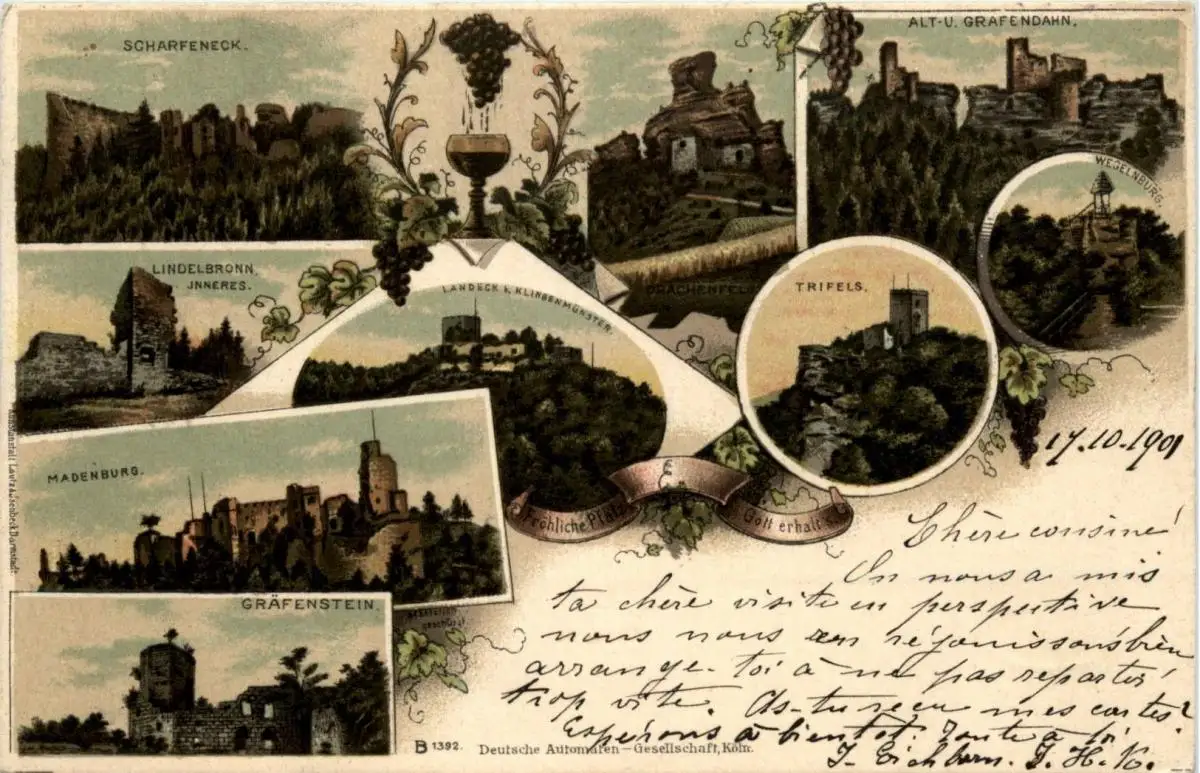 SCHARFENECK.
ALT-U. GRÄFENDAHN.
WEGELNBURG.
LINDELBRONN
JNNERES.
LANDECK b. KLINGENMÜNSTER.
DRACHENFELS
TRIFELS.
MADENBURG.
Fröhliche Pfalz
Gott erhalt's
GRÄFENSTEIN.
gesetzlich
geschützt
Kunstanstalt Lautz & Jsenbeck Darmstadt.
17.10.1901
Chère cousine!
On nous a mis
ta chère visite en perspective
nous nous en réjouissons bien
arrange-toi à ne pas repartir
trop vite. As-tu reçu mes cartes?
Espérons à bientôt. Toute à toi
J. Eichborn. J. H. K.
B 1392. Deutsche Automaten-Gesellschaft, Köln.